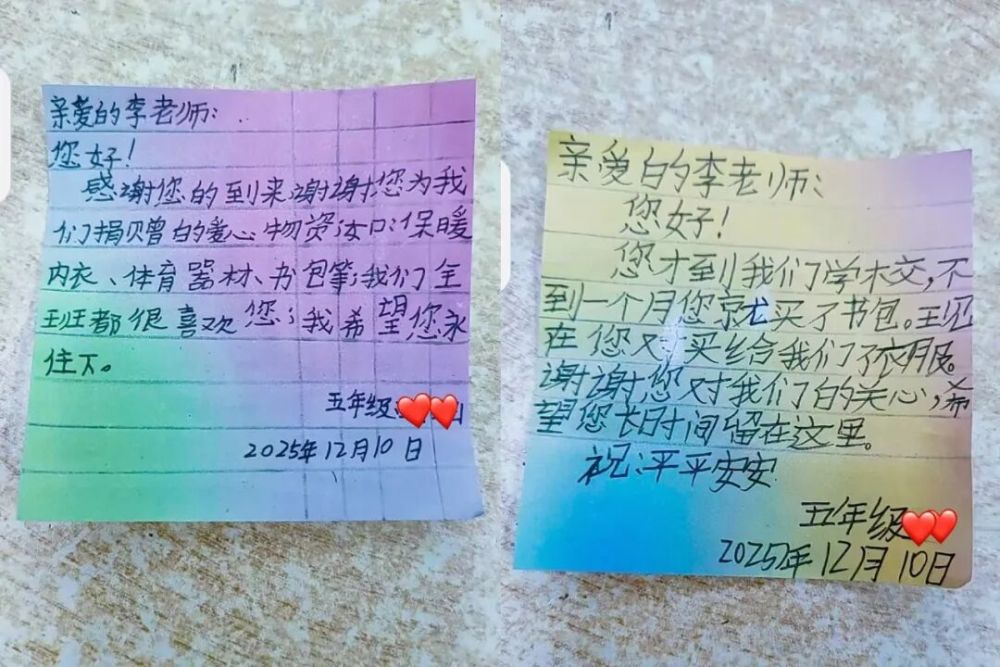 亲爱的李老师:
您好!
感谢您的到来谢谢您为我
们捐赠的爱心物资如:保暖
内衣、体育器材、书包等;我们全
班都很喜欢您;我希望您永
住下。
五年级
2025年12月10日
亲爱的李老师:
您好!
您才到我们学校,不
到一个月您就买了书包。现
在您又买给我们了衣服。
谢谢您对我们的关心,希
望您长时间留在这里。
祝:平平安安
五年级
2025年12月10日